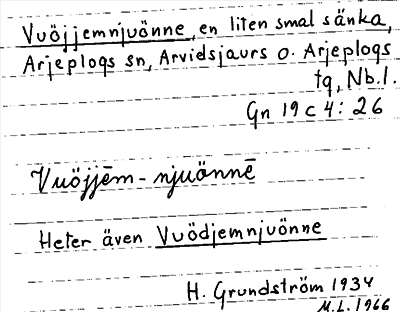 Vuöjjemnjuönne, en liten smal sänka,
Arjeplogs sn, Arvidsjaurs o. Arjeplogs
tg, Nb.l.
Gn 19 c 4: 26
Vuöjjēm-njuönnē
Heter även Vuödjemnjuönne
H. Grundström 1934
M.L. 1966